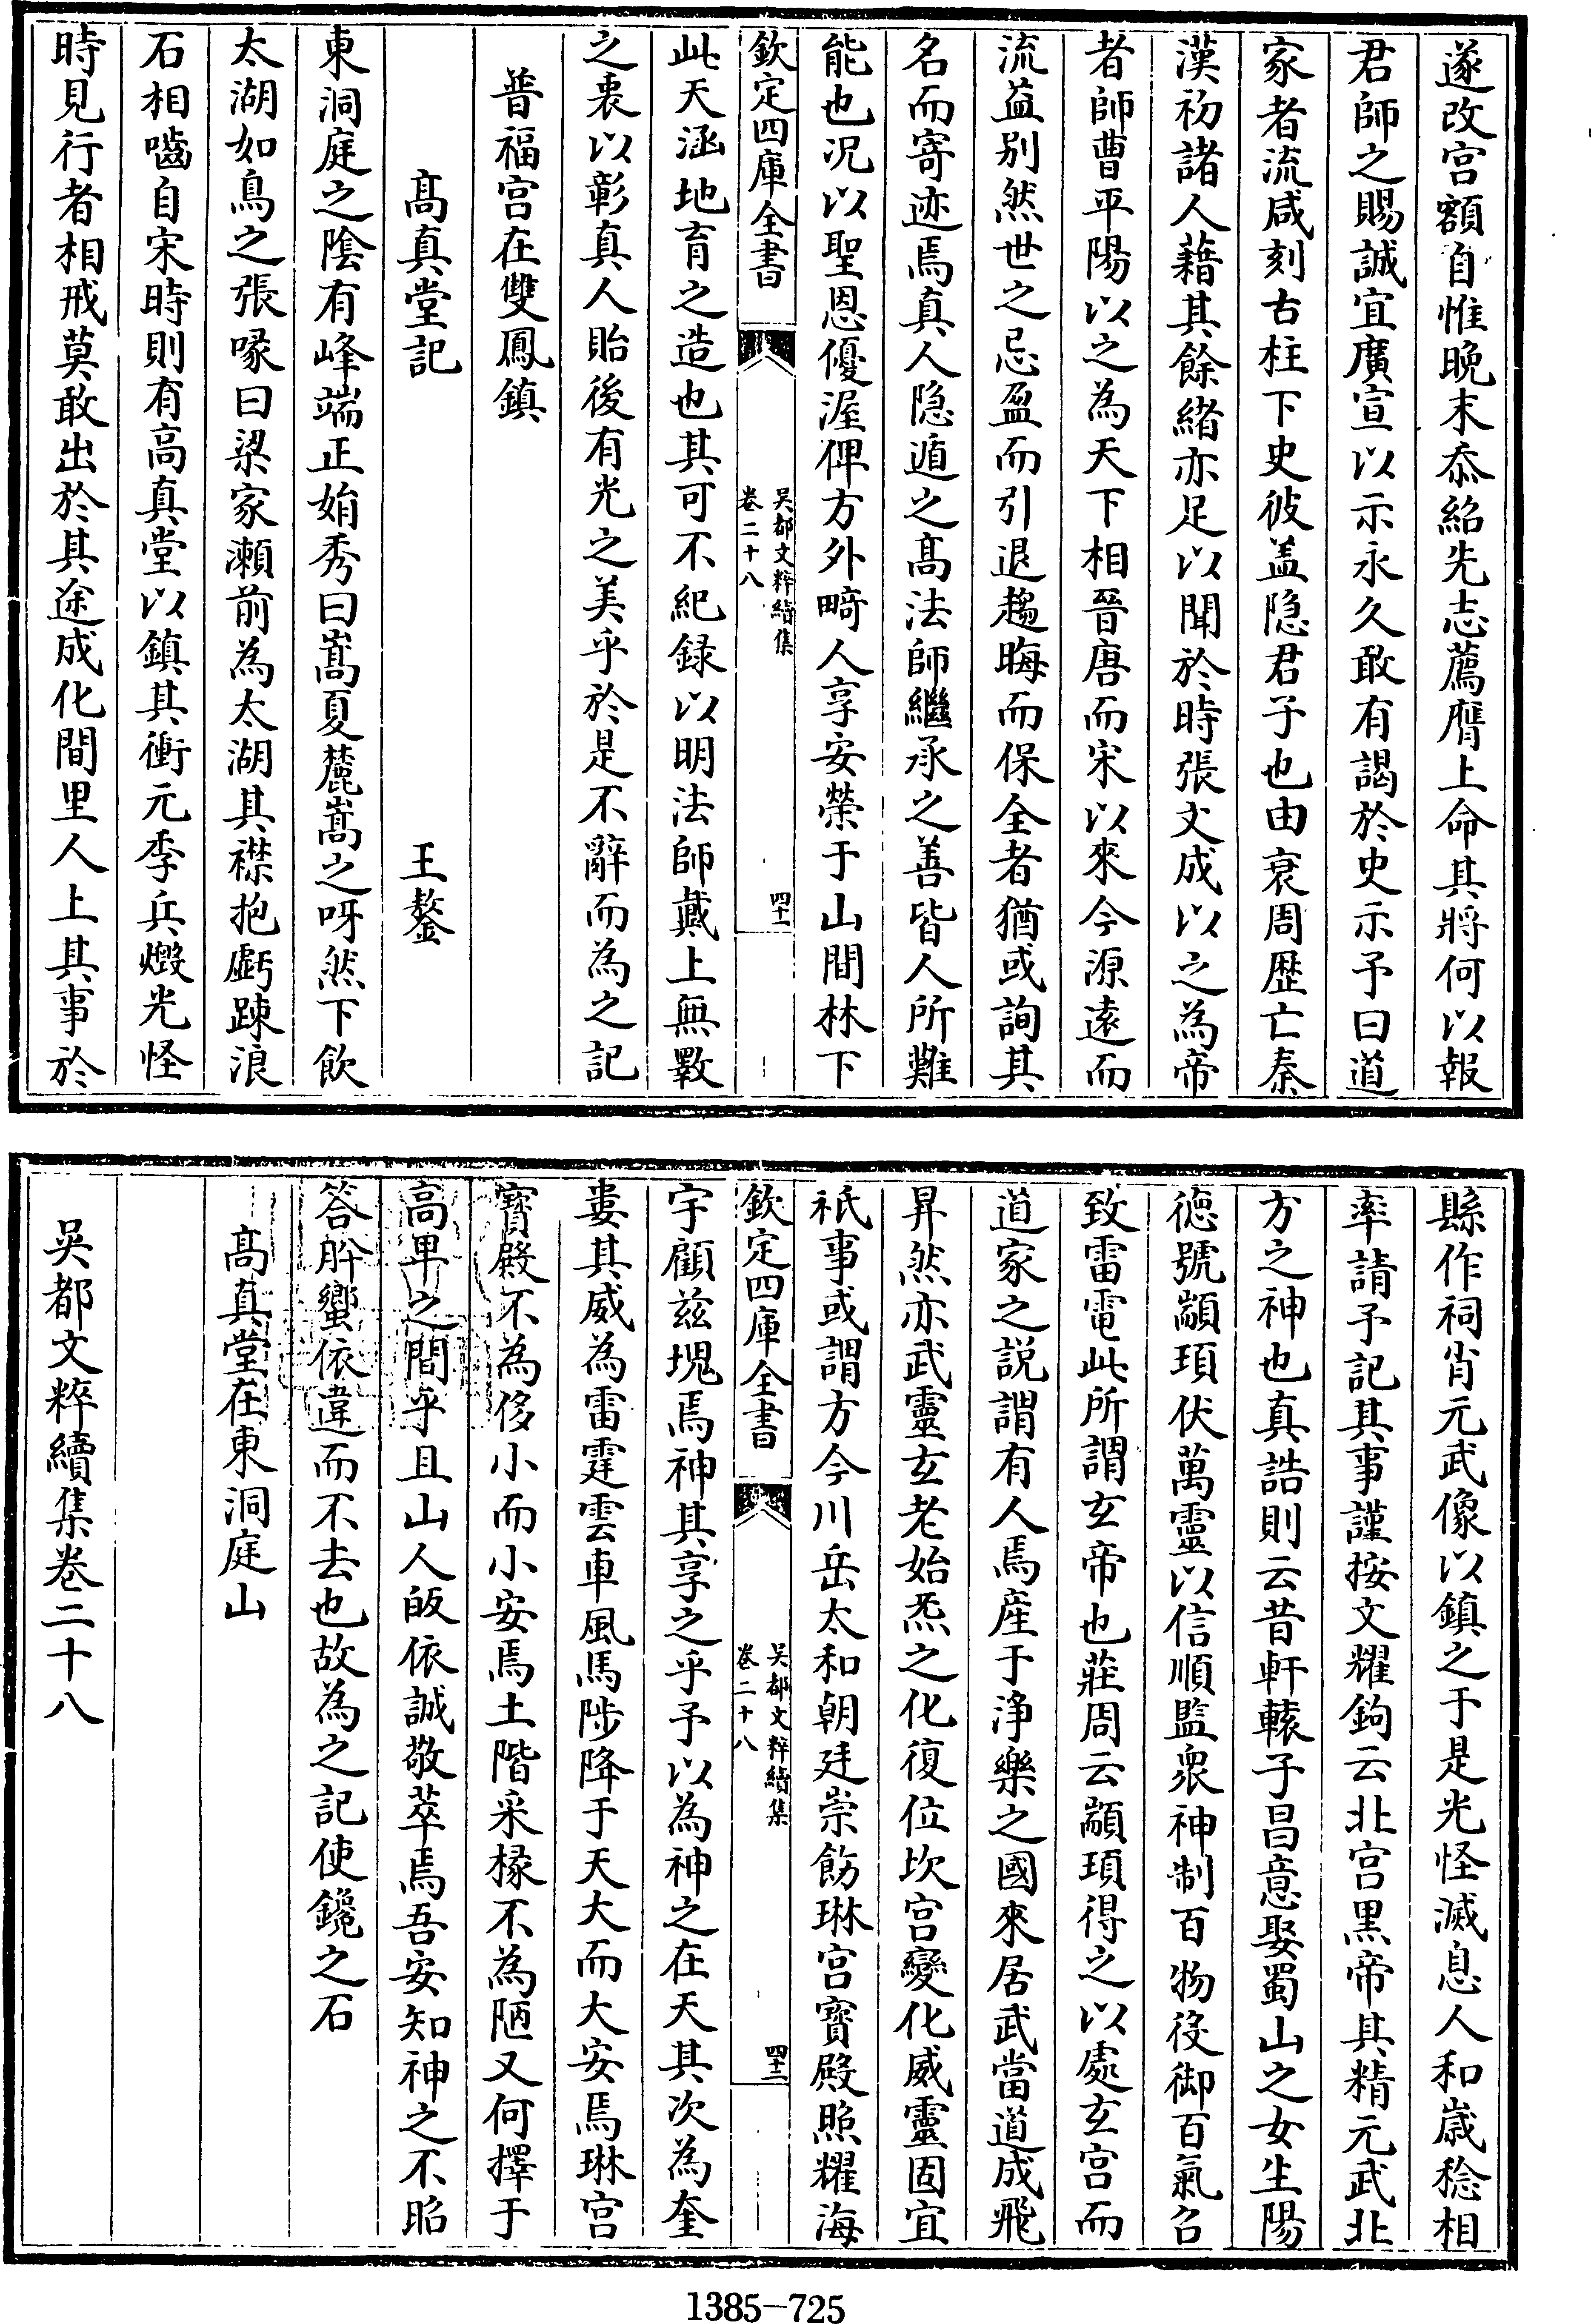 遂改宫額自惟晩末忝紹先志薦膺上命其將何以報
君師之賜誠宜廣宣以示永久敢有謁於史示予曰道
家者流咸刻古柱下史彼盖隐君子也由衰周歴亡秦
漢初諸人藉其餘緒亦足以聞於時張文成以之為帝
者師曹平陽以之為天下相晉唐而宋以來今源遠而
流益别然世之忌盈而引退趨晦而保全者猶或詢其
名而寄迹焉真人隐遁之髙法師繼承之善皆人所難
能也况以聖恩優渥俾方外畸人享安榮于山間林下
欽定四庫全書
吳都文粹續集
卷二十八
四十一
此天涵地育之造也其可不紀録以明法師戴上無斁
之衷以彰真人貽後有光之美乎於是不辭而為之記
普福宫在雙鳳鎮
髙真堂記 王鏊
東洞庭之隂有峰端正娟秀曰嵩夏麓嵩之呀然下飲
太湖如鳥之張喙曰梁家瀨前為太湖其襟抱虧踈浪
石相嚙自宋時則有高真堂以鎮其衝元季兵燬光怪
時見行者相戒莫敢出於其途成化間里人上其事於
縣作祠肖元武像以鎮之于是光怪滅息人和歳稔相
率請予記其事謹按文耀鉤云北宫黒帝其精元武北
方之神也真誥則云昔軒轅子昌意娶蜀山之女生陽
徳號顓頊伏萬靈以信順監衆神制百物役御百氣召
致雷電此所謂玄帝也莊周云顓頊得之以處玄宫而
道家之説謂有人焉産于浄樂之國來居武當道成飛
昇然亦武靈玄老始炁之化復位坎宫變化威靈固宜
祇事或謂方今川岳太和朝廷崇飭琳宫寳殿照耀海
欽定四庫全書
吳都文粹續集
卷二十八
四十二
宇顧兹塊焉神其享之乎予以為神之在天其次為奎
婁其威為雷霆雲車風馬陟降于天大而大安焉琳宫
寳殿不為侈小而小安焉土階采椽不為陋又何擇于
高卑之間乎且山人皈依誠敬萃焉吾安知神之不昭
答肸蠁依違而不去也故為之記使鑱之石
髙真堂在東洞庭山
吳都文粹續集卷二十八
1385-725